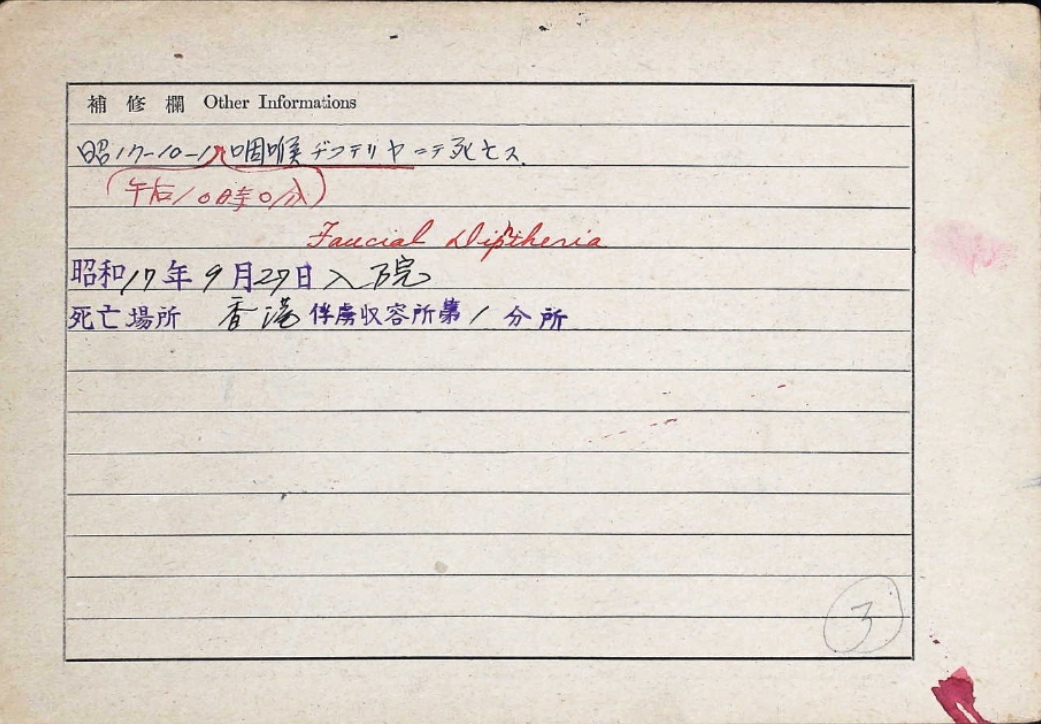 補修欄 Other Informations
昭17-10-1 咽喉ヂフテリヤニテ死亡ス
(午后10時0分)
Faucial Diptheria
昭和17年9月27日入院
死亡場所 香港俘虜収容所第1分所
3